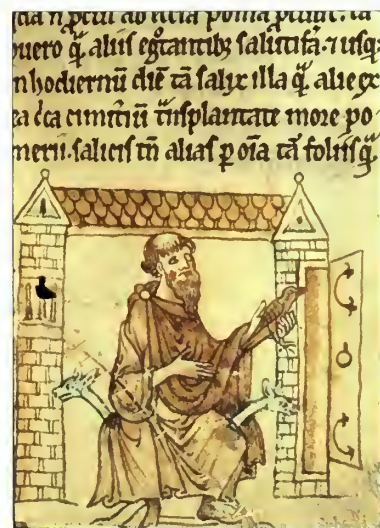 poma
puero q̄ᵃ aliis egͦtantibꝫ salutifᵃ. ⁊ usqꝫ
n hodiernū diē tā salix illa q̄ᵃ alie ex
ea cͥca cimit̾iū tͣnsplantate more po
merii. salicis tn̄ alias ꝑ oīa tā foliis q̄ᵃ